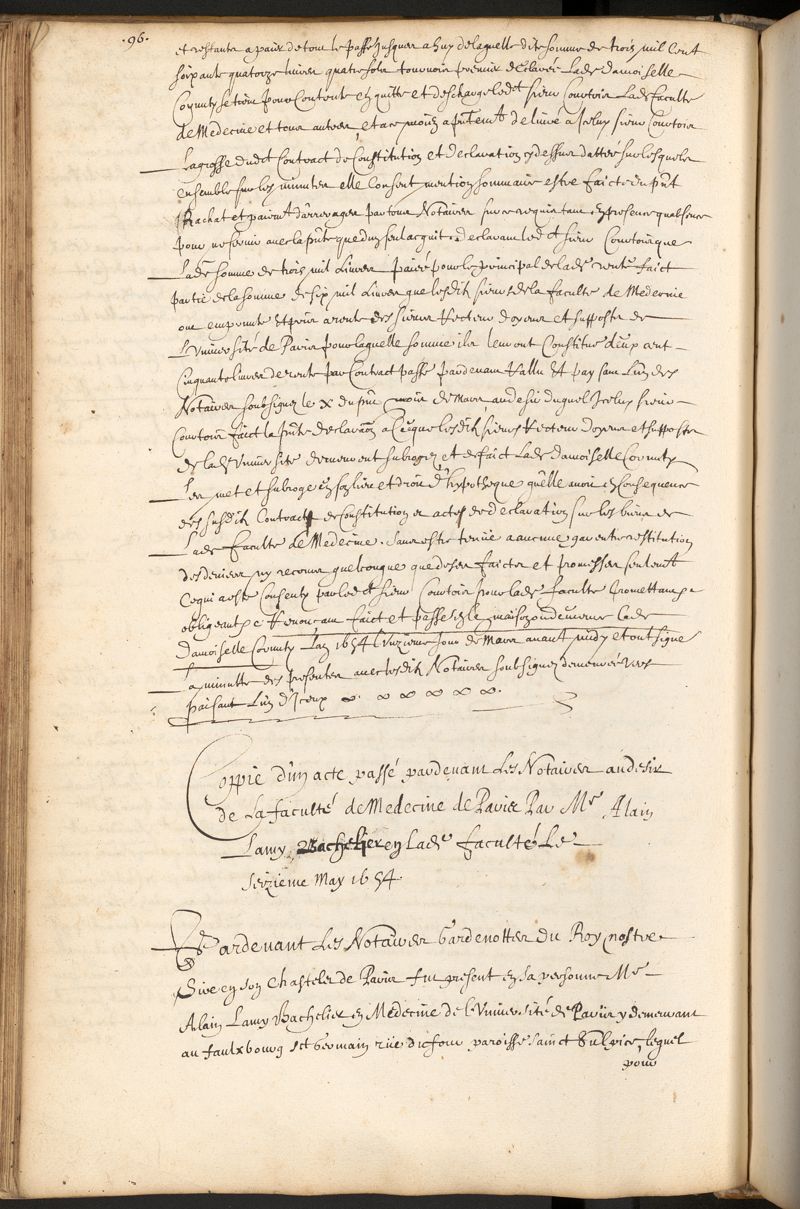 .96.
et restante a paier de tout le passé jusques a huy de laquelle ditte somme de trois mil cent
soixante quatorze livres quatre solz tournois premiere declarée Lade damoiselle
Cornuty se tient pour contente en quitte et descharge led sieur Courtois Lade faculté
de Medecine et tous autres, et a ce moien a pntemt delivré a Iceluy sieur Courtois
La grosse dudt Contract de Constitution et declaration cy dessus dattés sur lesquels
ensemble sur les minuttes elle consent mention sommaire estre faicte du pnt
Rachat et paiemt d'arrerages par tous Notaires sur ce requis tant en presence qu'absence
pour ne servir avec la pnte que d'un seul acquit. declarant led sieur Courtois que
Lade somme de trois mil livres paiée pour le principal de lade rente faict
partie de la somme de six mil livres que lesdits sieurs de la faculté de Medecine
ont emprunté et pris a rente des sieurs Recteur doyens et suppostz de
L'Université de Paris pour laquelle somme ilz leur ont Constitué deux cent
Cinquante livres de rente par Contract passé pardevant Vallu et Paisant L'un des
Notaires soubsignez le X du pnt mois de Mars au desir duquel Iceluy sieur
Courtois faict la pnte declaraon a ce que lesdits sieurs Recteur doyens et suppostz
de lade Université demeurent subrogez et de faict Lade damoiselle Cornuty
Les met et subroge en son lieu et droict d'hypotheque qu'elle avoit en consequence
des susdits Contractz de Constitution et actes de declaration sur les biens de
Lade faculté de Medecine. sans estre tenue a aucune garentie restitution
des deniers ny recours quelconque que de ses faictes et promesses seulemt
Ce qui a esté consenty par led sieur Courtois pour lade faculté Promettant &c
obligeant &c Renonçant faict et passé en la maison ou demeure lade
Damoiselle Cornuty L'an 1654 l'unzieme jour de Mars avant midy et ont signé
La minutte des presentes avec lesdits Notaires soubsignez demeurée vers
Paisant L'un d'Iceux
Coppie d'un acte passé pardevant Les Notaires au desir
de La faculté de Medecine de Paris Par Mr Alain
Lamy Bachelier en Lade faculté Le
seizieme May 1654.
Pardevant Les Notaires Gardenottes du Roy nostre
Sire en son Chastelet de Paris fut present en sa personne Mr
Alain Lamy Bachelier en Medecine de L'Université de Paris y demeurant
au faulxbourg sct Germain rüe du four paroisse sainct Sulpice, lequel
pour